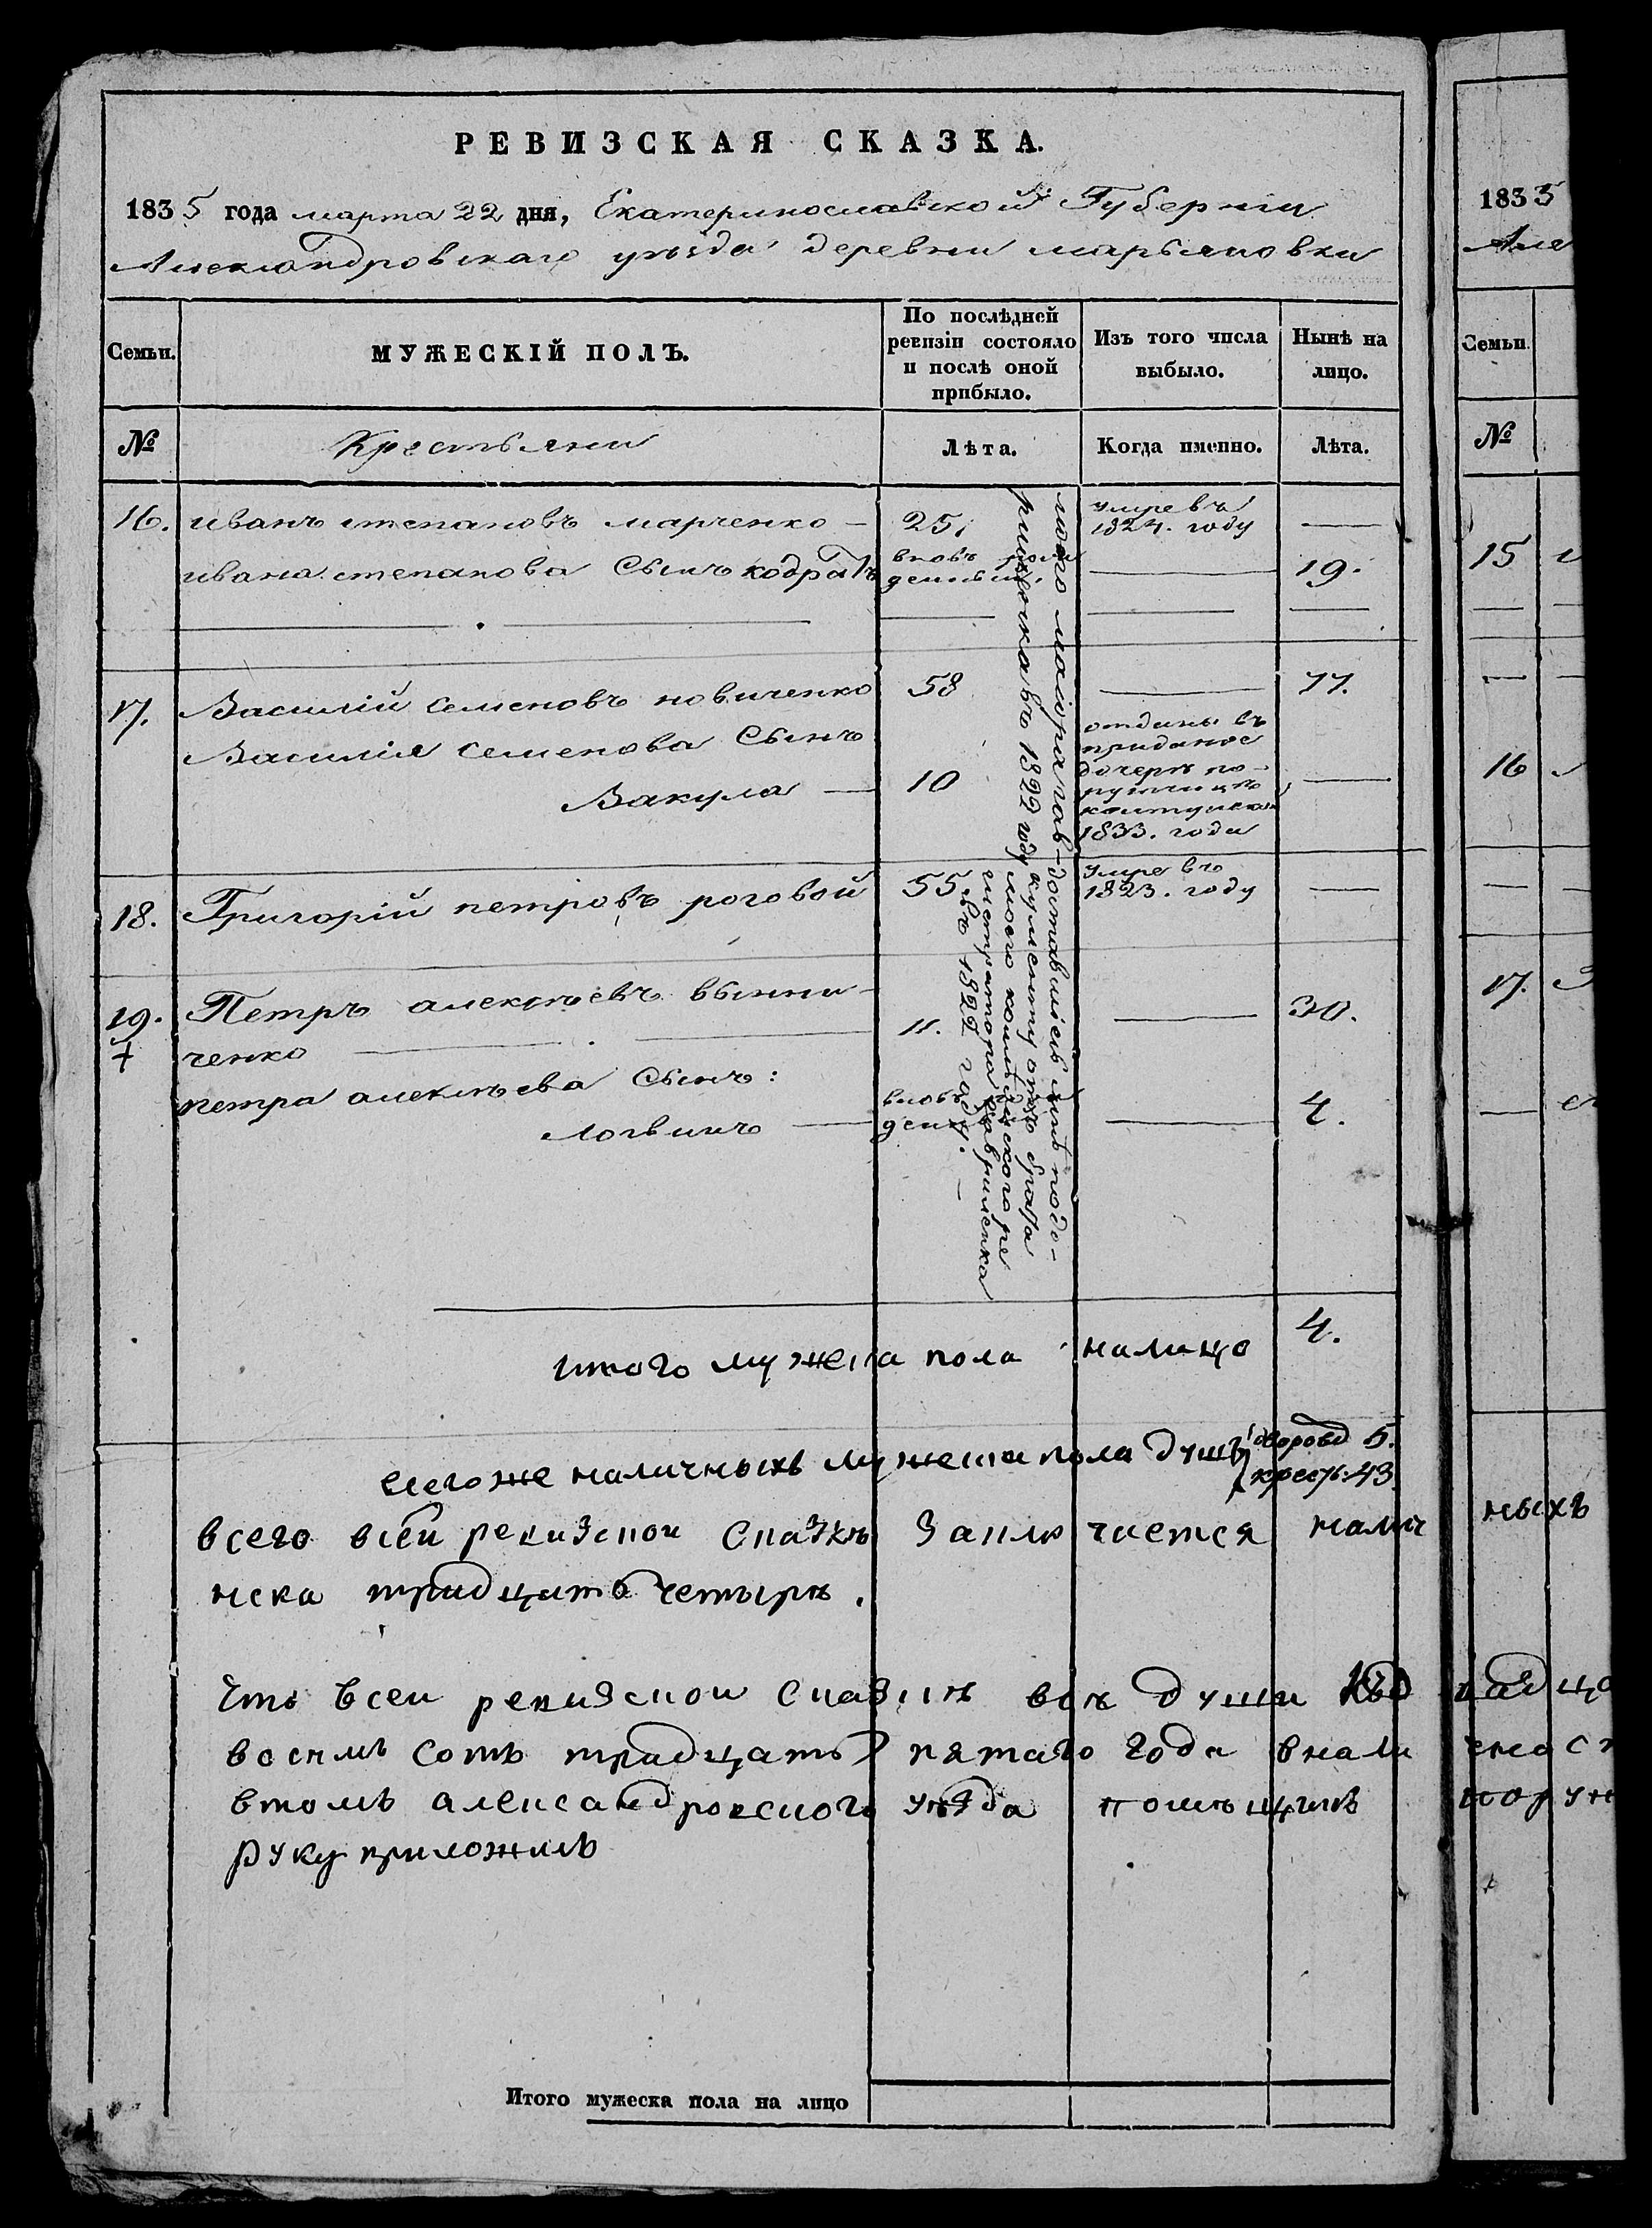 РЕВИЗСКАЯ СКАЗКА.
1835 года марта 22 дня, Екатеринославской Губерніи
Александровскаго уѣзда деревни марьяновки
Семьи.
МУЖЕСКІЙ ПОЛЪ.
По послѣдней
ревизіи состояло
и послѣ оной
прибыло.
Изъ того числа
выбыло.
Нынѣ на
лицо.
№
Крестьяни
Лѣта.
Когда именно.
Лѣта.
16. иванъ степановъ марченко — 25. умре въ
1824. году —
ивана степанова Сынъ кодратъ вновь рож
денный — 19.
17. Василій семеновъ новиченко 58 — 77.
Василія семенова Сынъ
Вакула — 10
отданы въ
приданое
дочерѣ по-
1833. года —
18. Григорій петровъ роговой 55. умре въ
1823. году —
19. Петръ алексѣевъ винни-
+ ченко — 11. — 30.
петра алексѣева Сынъ:
логвинъ — вновь
ден — 4.
моего маіора гав- доставшіесь мнѣ подо-
рименка въ 1822 году кументу отъ брата
моего колежского ре
гистратора гаврименка
въ 1822 году. —
итого мужеска пола налицо 4.
всего же наличныхъ мужеска пола душъ дворов 5.
крестъ: 43.
всего всей ревизской сказкѣ заключается налич
неска тридцать четырѣ.
Что всей ревизской сказкѣ всѣ души
восемь сотъ тридцать пятаго года внали
втомъ александровского уѣзда помѣщикъ
руку приложилъ
Итого мужеска пола на лицо
1835
Але
Семьи.
№
15
16
17.
ныхъ